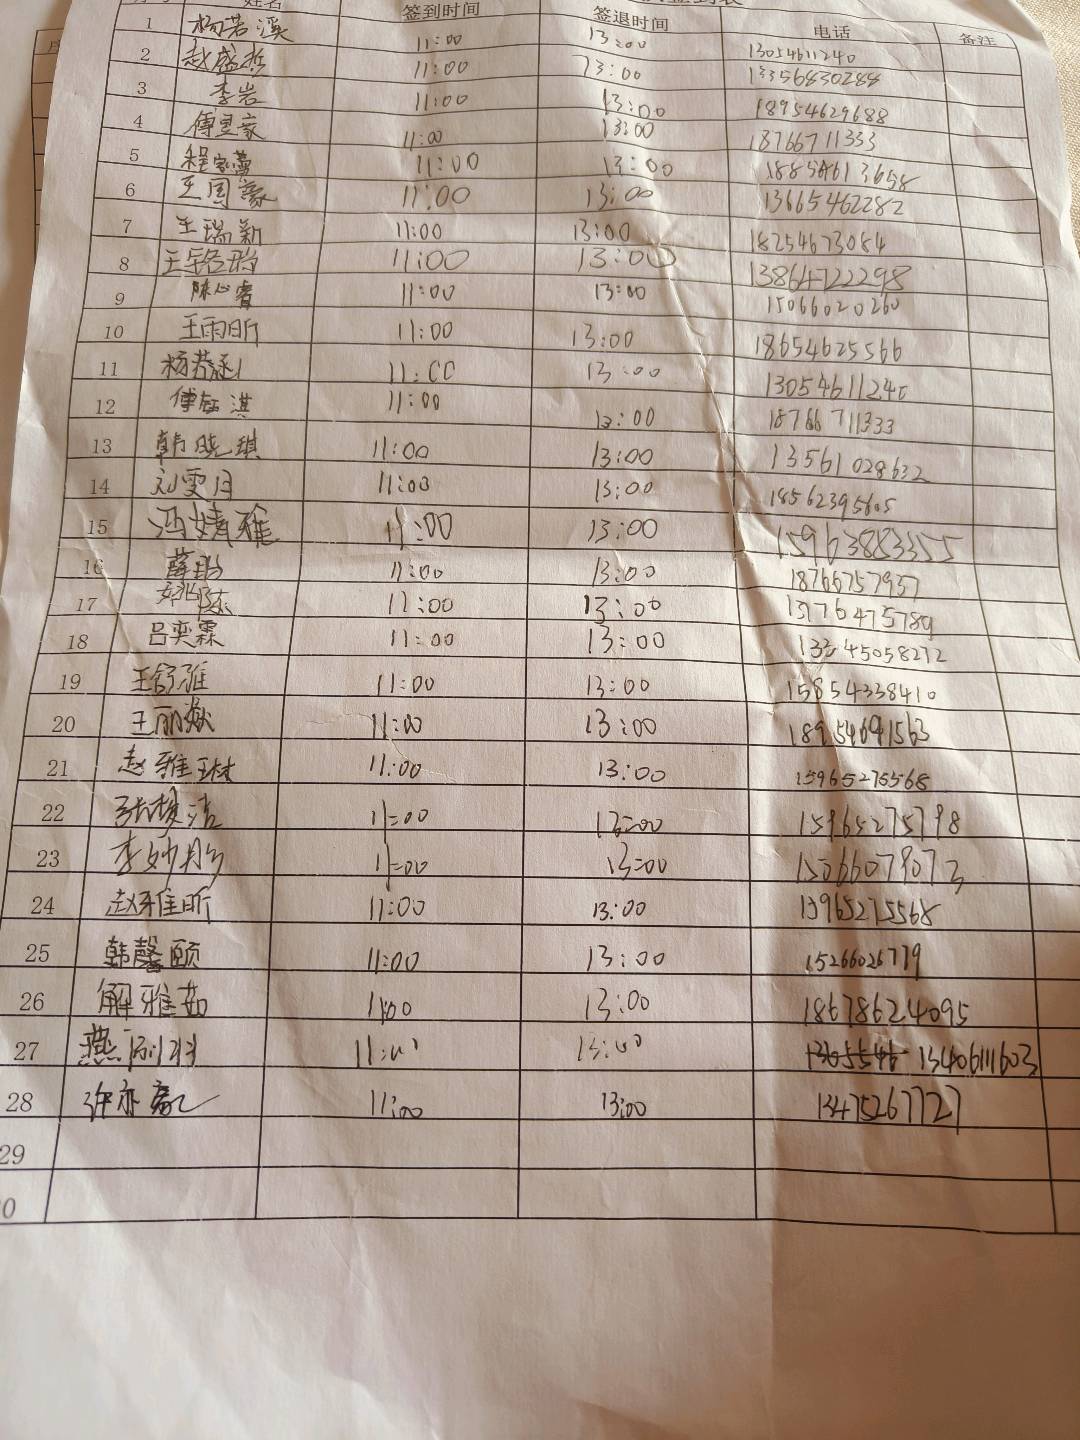 签到表
序号 姓名 签到时间 签退时间 电话 备注
1 杨若溪 11:00 13:00 13054611240
2 赵盛哲 11:00 13:00 13356830288
3 李岩 11:00 13:00 18954629688
4 傅昱豪 11:00 13:00 18766711333
5 程家蕾 11:00 13:00
6 王国豪 11:00 13:00 13665462282
7 王瑞新 11:00 13:00 18254673084
8 11:00 13:00 13864722298
9 陈心睿 11:00 13:00 15066020260
10 王雨昕 11:00 13:00 18654625566
11 11:00 13:00 13054611240
12 傅钰淇 11:00 13:00 18766711333
13 韩晓琪 11:00 13:00 13561028632
14 刘雯月 11:00 13:00 18562395605
15 冯婧雅 11:00 13:00 15963883355
16 11:00 13:00 18766757937
17 11:00 13:00
18 吕奕霖 11:00 13:00
19 王舒雅 11:00 13:00 15854338410
20 11:00 13:00 18954691563
21 赵雅琳 11:00 13:00 15965275568
22 11=00 13=00 15965275798
23 李妙彤 11=00 13=00 15066079073
24 赵雅昕 11:00 13:00 15965275568
25 韩馨颐 11:00 13:00
26 解雅茹 11:00 13:00 18678624095
27 11:00 13:00 13406111603
28 徐亦豪 11:00 13:00 13475267727
29